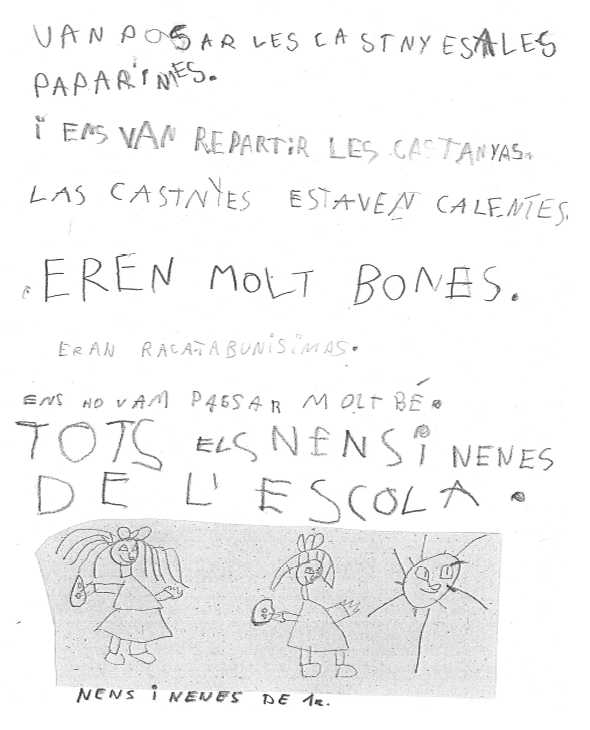 VAN POSAR LES CASTNYES A LES
PAPARINES.
i ENS VAN REPARTiR LES CASTANYAS.
LAS CASTNYES ESTAVEN CALENTES.
EREN MOLT BONES.
ERAN RACATABUNiSiMAS.
ENS HO VAM PASSAR MOLT BÉ.
TOTS ELS NENS i NENES
DE L'ESCOLA.
NENS i NENES DE 1R.